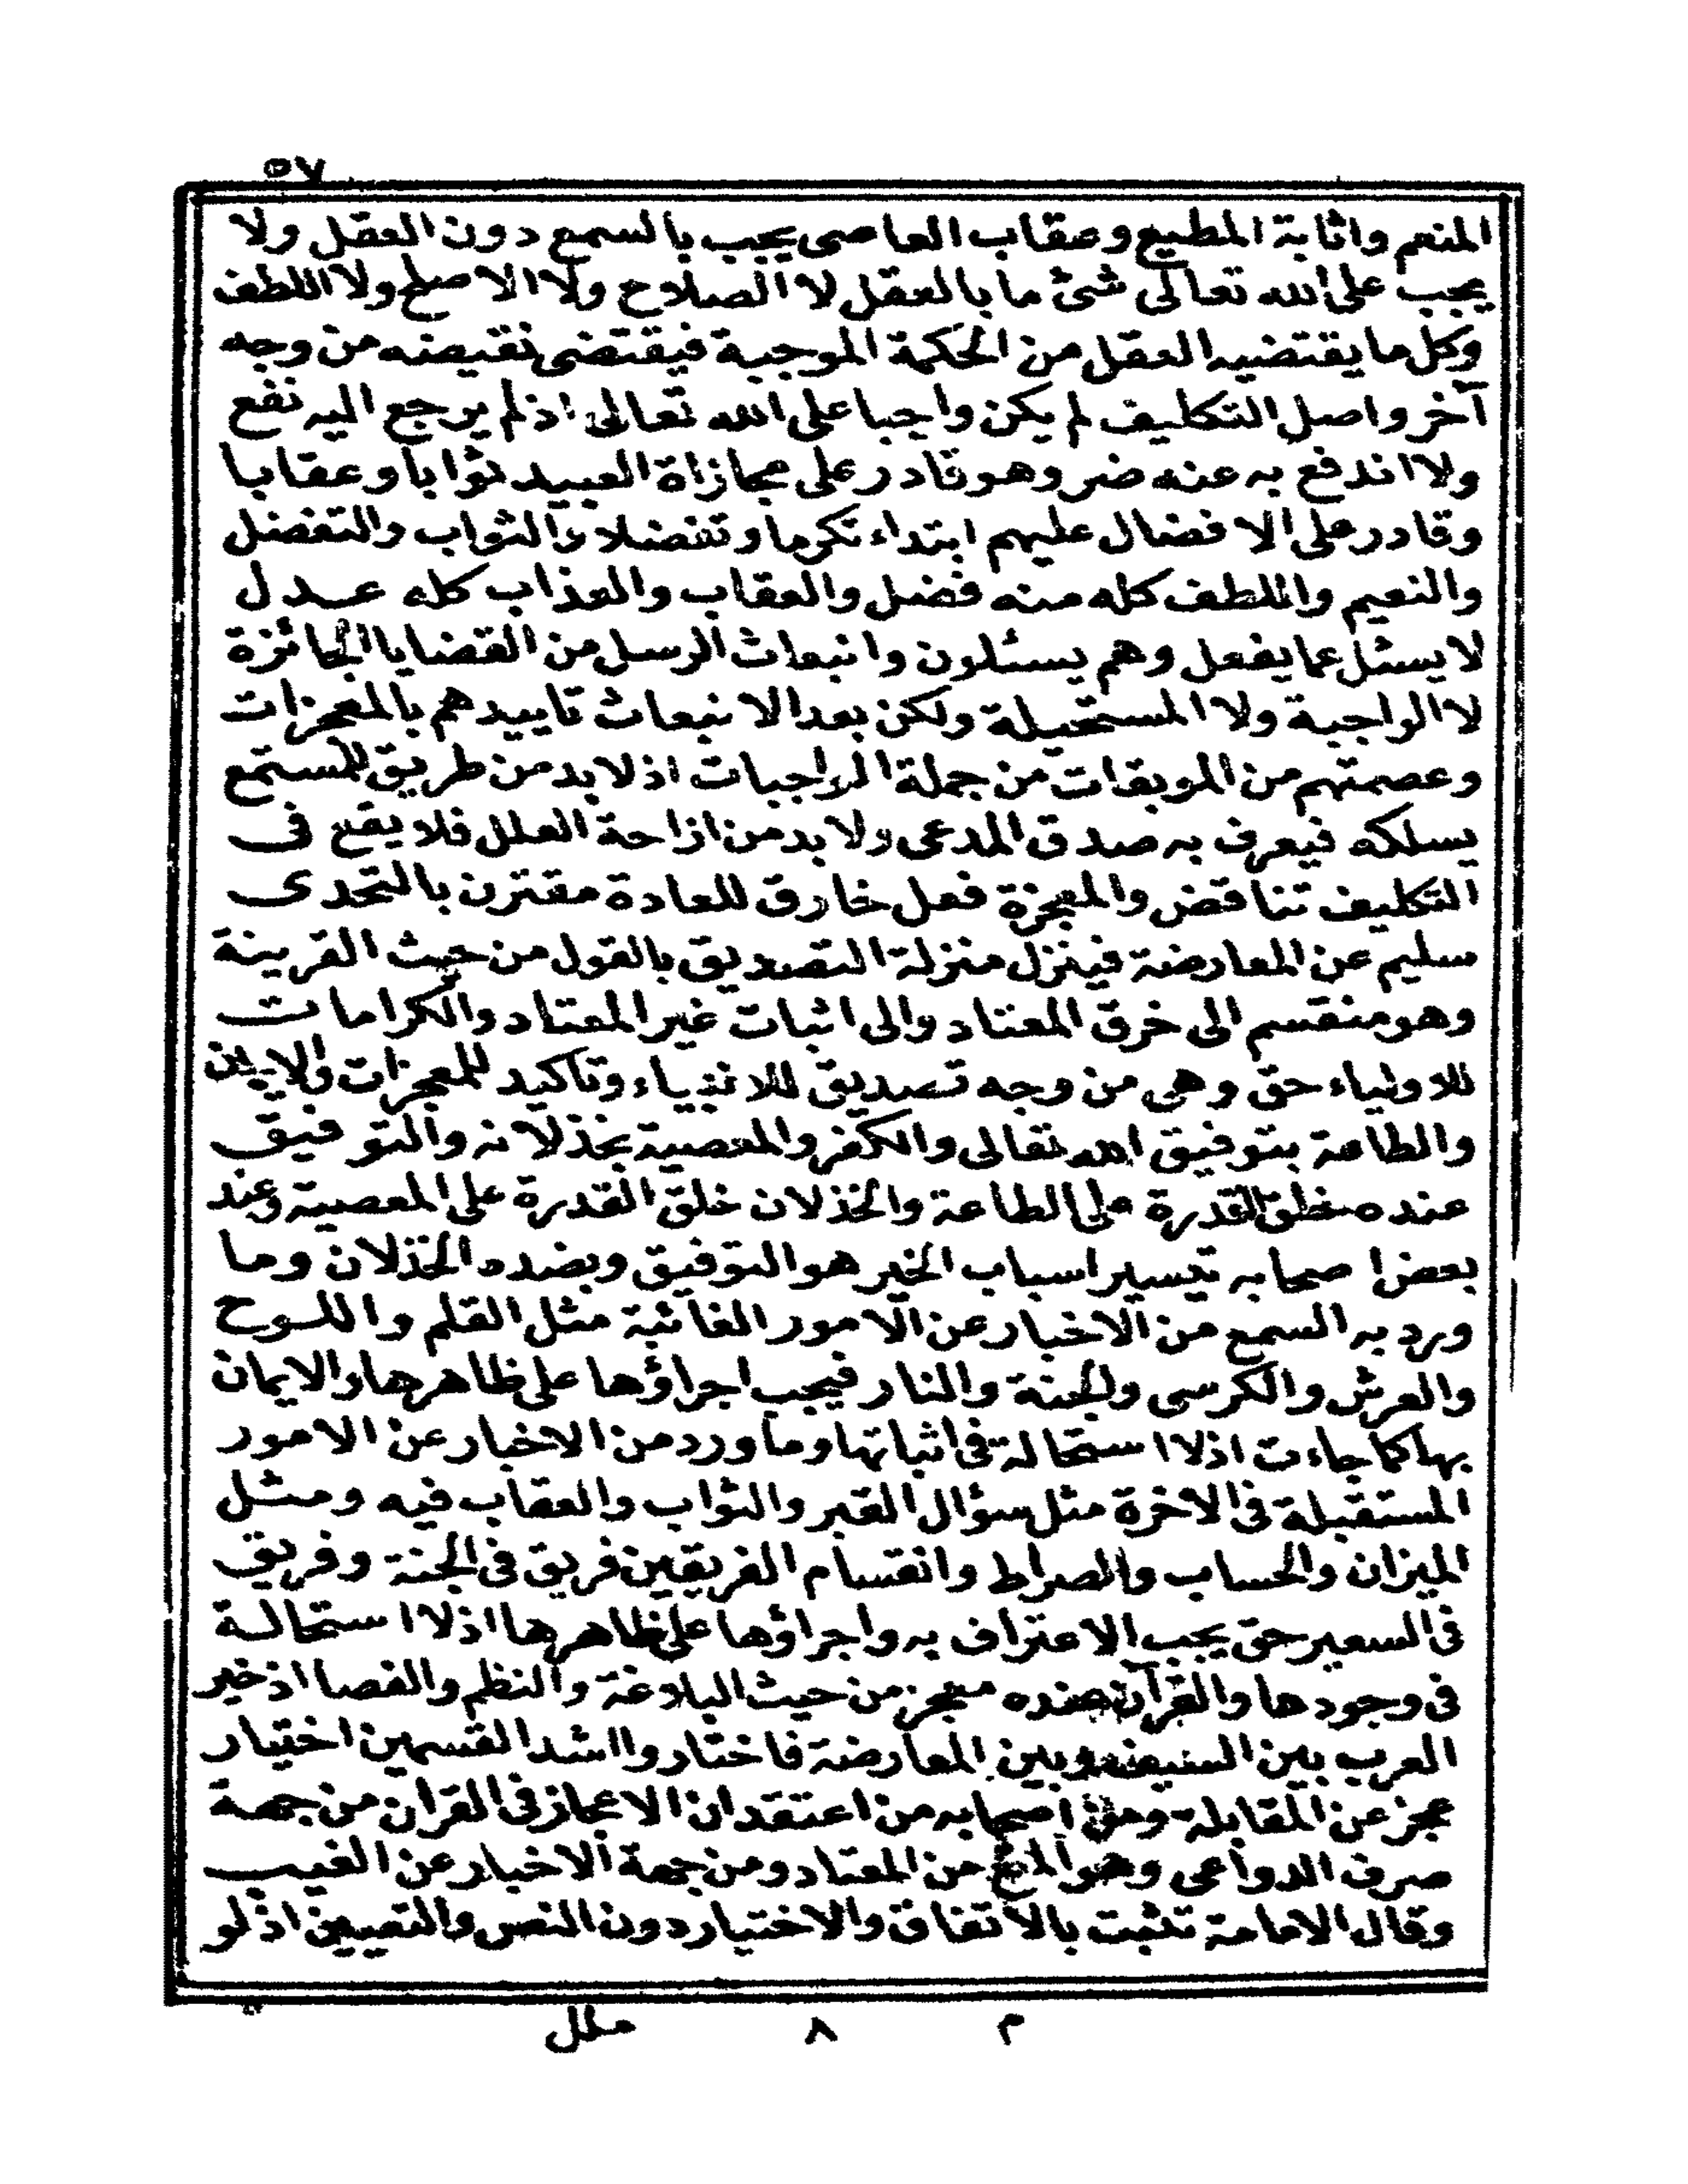 ٥٧
المنعم واثابة المطيع وعقاب العاصى يجب بالسمع دون العقل ولا
يجب على الله تعالى شئ ما بالعقل لا الصلاح ولا الاصلح ولا اللطف
وكل ما يقتضيه العقل من الحكمة الموجبة فيقتضى نقيضه من وجه
آخر واصل التكليف لم يكن واجبا على الله تعالى اذ لم يرجع اليه نفع
ولا اندفع به عنه ضر وهو قادر على مجازاة العبيد ثوابا وعقابا
وقادر على الا فضال عليهم ابتداء تكرما وتفضلا والثواب والتفضل
والنعيم واللطف كله منه فضل والعقاب والعذاب كله عدل
لا يسئل عما يفعل وهم يسئلون وانبعاث الرسل من القضايا الجائزة
لا الواجبة ولا المستحيلة ولكن بعد الا نبعاث تاييدهم بالمعجزات
وعصمتهم من الموبقات من جملة الواجبات اذ لا بد من طريق للمستمع
يسلكه فيعرف به صدق المدعى ولا بد من ازاحة العلل فلا يقع فى
التكليف تناقض والمعجزة فعل خارق للعادة مقترن بالتحدى
سليم عن المعارضة فينزل منزلة التصديق بالقول من حيث القرينة
وهو منقسم الى خرق المعتاد والى اثبات غير المعتاد والكرامات
للاولياء حق وهى من وجه تصديق للانبياء وتاكيد للمعجزات والايمان
والطاعة بتوفيق الله تعالى والكفر والمعصية بخذلانه والتوفيق
عنده خلق القدرة على الطاعة والخذلان خلق القدرة على المعصية وعند
بعض اصحابه تيسير اسباب الخير هو التوفيق وبضده الخذلان وما
ورد به السمع من الاخبار عن الامور الغائبة مثل القلم واللوح
والعرش والكرسى والجنة والنار فيجب اجراؤها على ظاهرها والايمان
بها كما جاءت اذ لا استحالة فى اثباتها وما ورد من الاخبار عن الامور
المستقبلة فى الاخرة مثل سؤال القبر والثواب والعقاب فيه ومثل
الميزان والحساب والصراط وانقسام الفريقين فريق فى الجنة وفريق
فى السعير حق يجب الاعتراف به واجراؤها على ظاهرها اذ لا استحالة
فى وجودها والقرآن عنده معجز من حيث البلاغة والنظم والفصا اذ خير
العرب بين السيف وبين المعارضة فاختاروا اشد القسمين اختيار
عجز عن المقابلة ومن اصحابه من اعتقد ان الاعجاز فى القران من جهة
صرف الدواعى وهو المنع من المعتاد ومن جهة الاخبار عن الغيب
وقال الامامة تثبت بالاتفاق والاختيار دون النص والتعيين اذ لو
م ٨ ملل